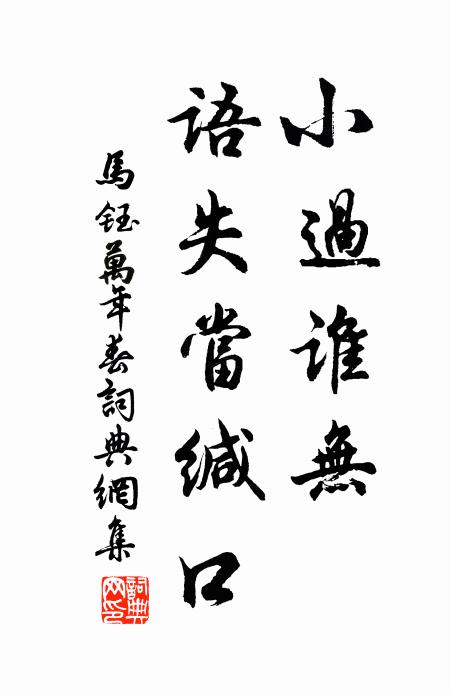 小過誰無
语失當缄口
馬鈺萬年春詞典網集
詞典网印